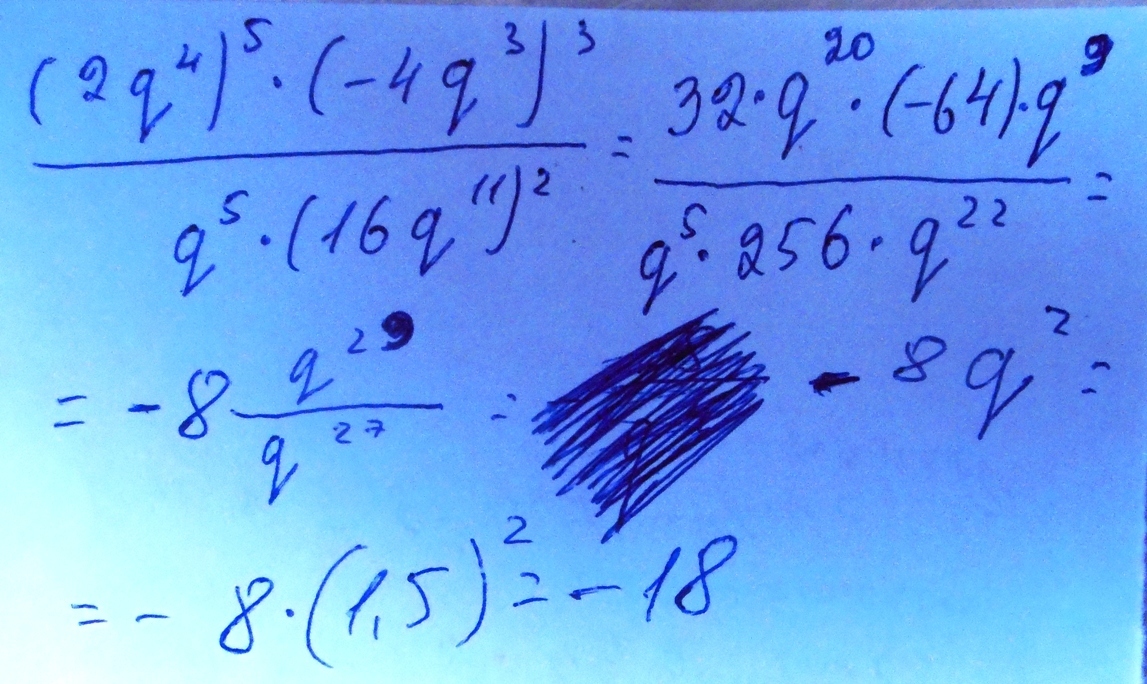 (2q⁴)⁵·(-4q³)³ / q⁵·(16q¹¹)² = 32·q²⁰·(-64)·q⁹ / q⁵·256·q²² =
= -8 q²⁹ / q²⁷ = - 8q² =
= - 8·(1,5)² = - 18